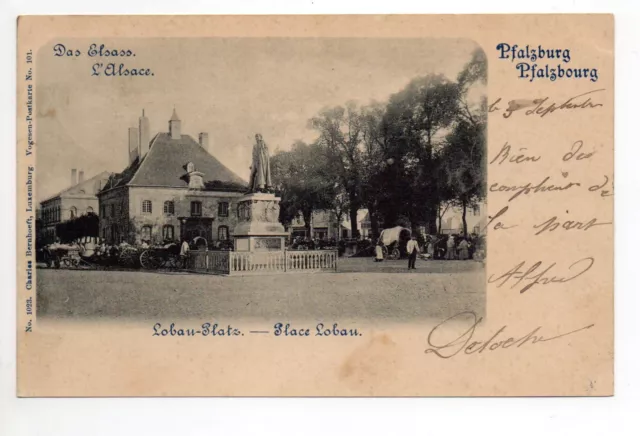 Das Elsass.
L'Alsace.
Pfalzburg
Pfalzbourg
No. 1023. Charles Bernhoeft, Luxemburg Vogesen-Postkarte No. 101.
le 5 Septembre
Rien des
compliments de
la part
Alfred
Deloche
Lobau-Platz. — Place Lobau.